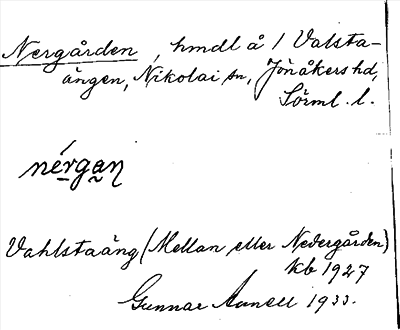 Nergården, hmdl å 1 Valsta-
ängen, Nikolai sn, Jönåkers hd,
Sörml. l.
nérgaɳ
Vahlstaäng (Mellan eller Nedergården)
kb 1927
Gunnar Aunell 1933.